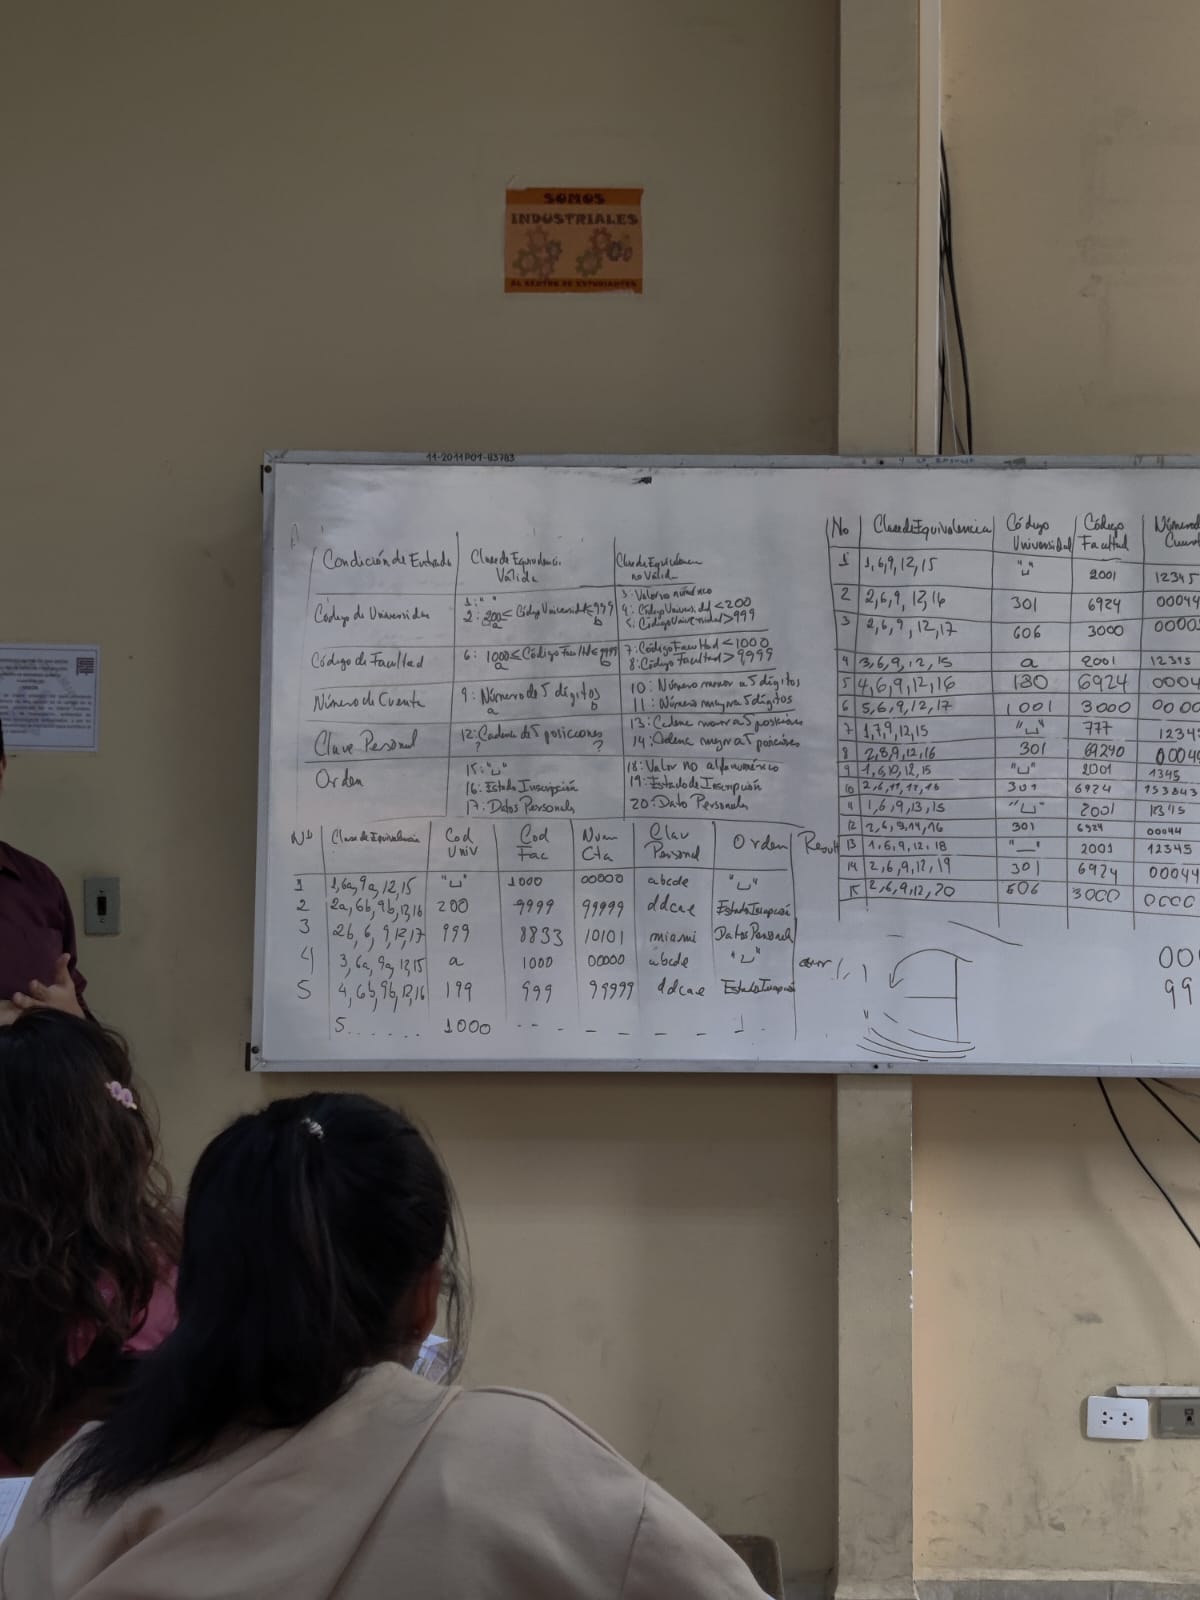 SOMOS
INDUSTRIALES
AL CENTRO DE ESTUDIANTES
11-2011P01-03783
Condición de Entrada | Clase de Equivalencia Válida | Clase de Equivalencia no Válida
Código de Universidad | 1: " " | 3: Valor no numérico
2: 200 ≤ Código Universidad ≤ 999 | 4: Código Universidad < 200
a b | 5: Código Universidad > 999
Código de Facultad | 6: 1000 ≤ Código Facultad ≤ 9999 | 7: Código Facultad < 1000
a b | 8: Código Facultad > 9999
Número de Cuenta | 9: Número de 5 dígitos | 10: Número menor a 5 dígitos
a b | 11: Número mayor a 5 dígitos
Clave Personal | 12: Cadena de 5 posiciones | 13: Cadena menor a 5 posiciones
? ? | 14: Cadena mayor a 5 posiciones
Orden | 15: "␣" | 18: Valor no alfanumérico
16: Estado Inscripción | 19: Estado de Inscripción
17: Datos Personals | 20: Dato Personals
Nº | Clase de Equivalencia | Cod Univ | Cod Fac | Num Cta | Clav Personal | Orden | Result
1 | 1, 6a, 9a, 12, 15 | "␣" | 1000 | 00000 | abcde | "␣"
2 | 2a, 6b, 9b, 12, 16 | 200 | 9999 | 99999 | ddcae | Estado Inscripción
3 | 2b, 6, 9, 12, 17 | 999 | 8833 | 10101 | miami | Datos Personals
4 | 3, 6a, 9a, 12, 15 | a | 1000 | 00000 | abcde | "␣"
5 | 4, 6b, 9b, 12, 16 | 199 | 999 | 99999 | ddcae | Estado Inscripción
5 . . . . . . | 1000 | - - - - - -
No | Clase de Equivalencia | Código Universidad | Código Facultad | Número Cuent
1 | 1, 6, 9, 12, 15 | "␣" | 2001 | 12345
2 | 2, 6, 9, 12, 16 | 301 | 6924 | 00044
3 | 2, 6, 9, 12, 17 | 606 | 3000 | 0000
4 | 3, 6, 9, 12, 15 | a | 2001 | 12315
5 | 4, 6, 9, 12, 16 | 180 | 6924 | 0004
6 | 5, 6, 9, 12, 17 | 1001 | 3000 | 0000
7 | 1, 7, 9, 12, 15 | "␣" | 777 | 1234
8 | 2, 8, 9, 12, 16 | 301 | 69240 | 00044
9 | 1, 6, 10, 12, 15 | "␣" | 2001 | 1345
10 | 2, 6, 11, 12, 16 | 301 | 6924 | 153843
11 | 1, 6, 9, 13, 15 | "␣" | 2001
12 | 2, 6, 9, 14, 16 | 301 | 6924 | 00044
13 | 1, 6, 9, 12, 18 | "␣" | 2001 | 12345
14 | 2, 6, 9, 12, 19 | 301 | 6924 | 00044
15 | 2, 6, 9, 12, 20 | 606 | 3000 | 0000
00
99